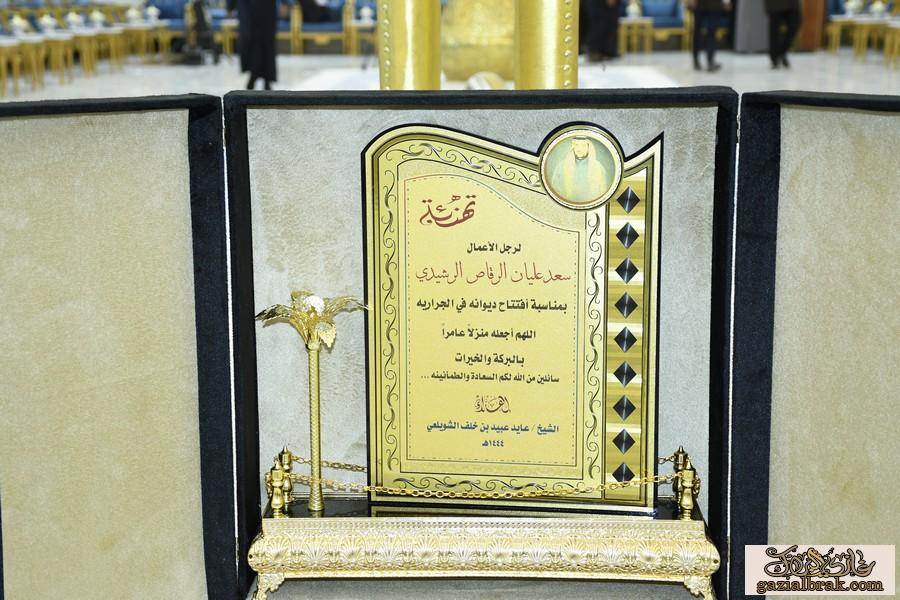 تهنئة
لرجل الأعمال
سعد عليان الرقاص الرشيدي
بمناسبة أفتتاح ديوانه في الجراريه
اللهم أجعله منزلاً عامراً
بالبركة والخيرات
سائلين من الله لكم السعادة والطمأنينه ...
إهداء
الشيخ / عايد عبيد بن خلف الشويلعي
١٤٤٤هـ
gazialbrak.com